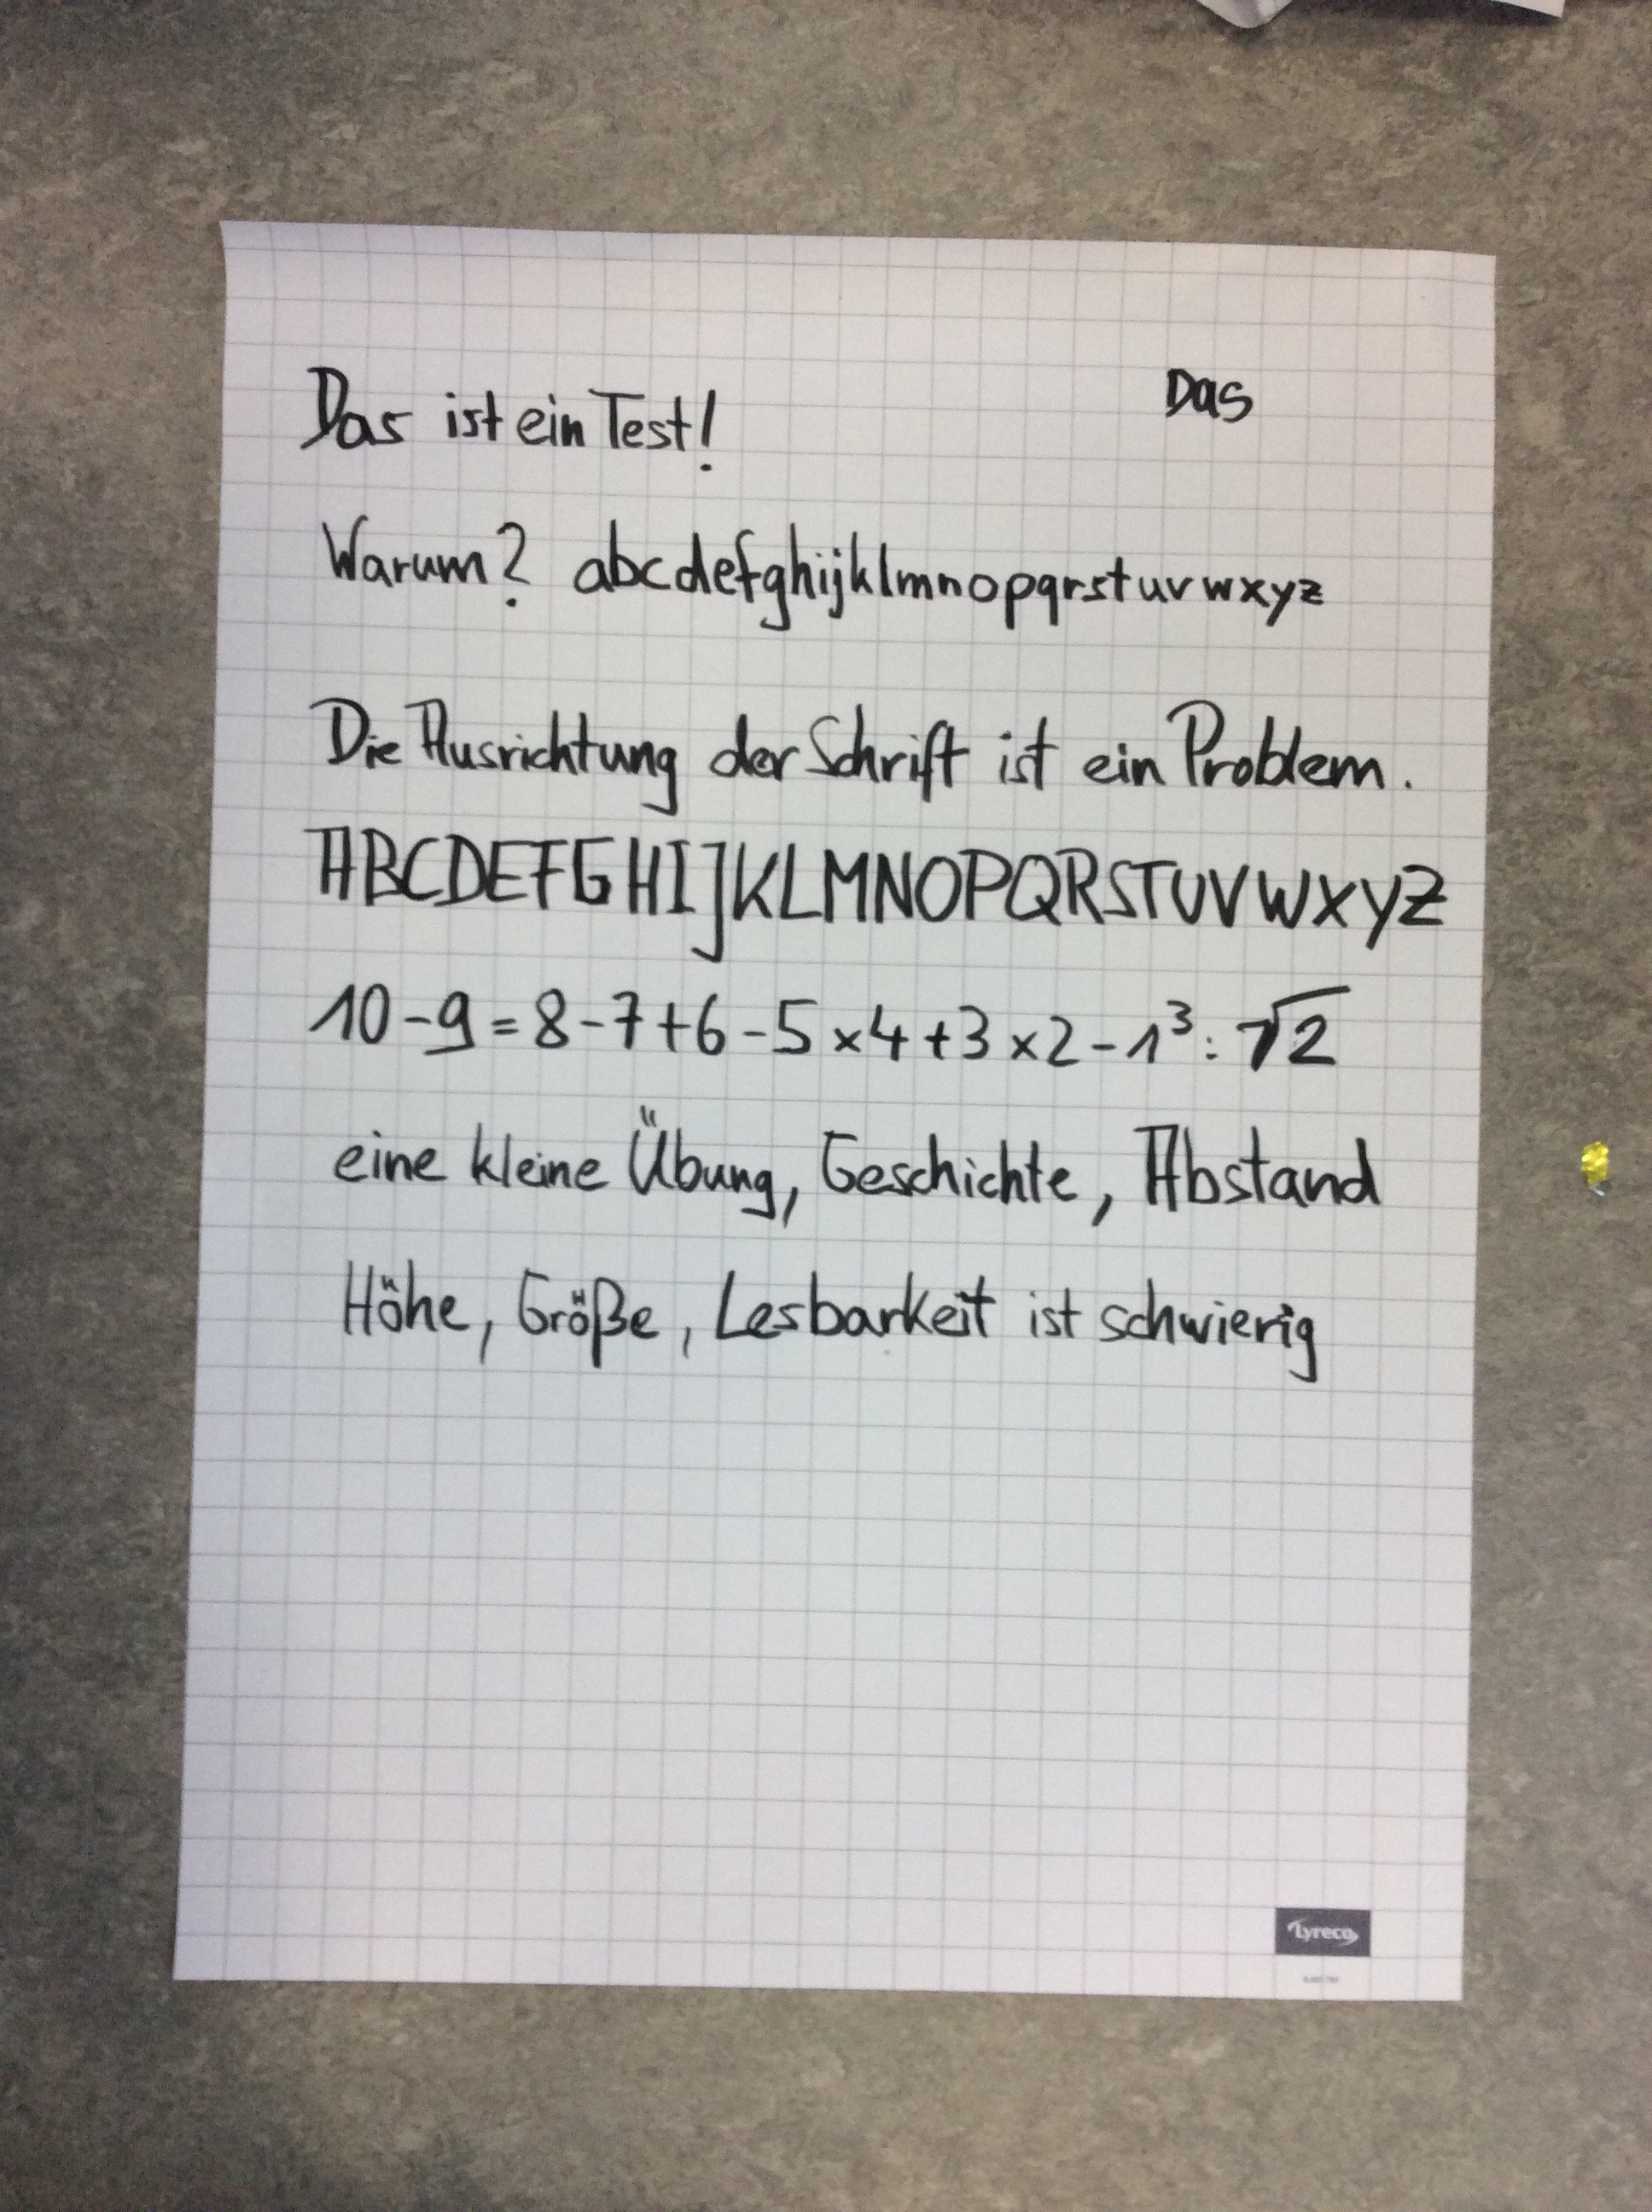 Das ist ein Test! Das
Warum? abcdefghijklmnopqrstuvwxyz
Die Ausrichtung der Schrift ist ein Problem.
ABCDEFGHIJKLMNOPQRSTUVWXYZ
10-9=8-7+6-5x4+3x2-1³:√2
eine kleine Übung, Geschichte, Abstand
Höhe, Größe, Lesbarkeit ist schwierig
Lyreco